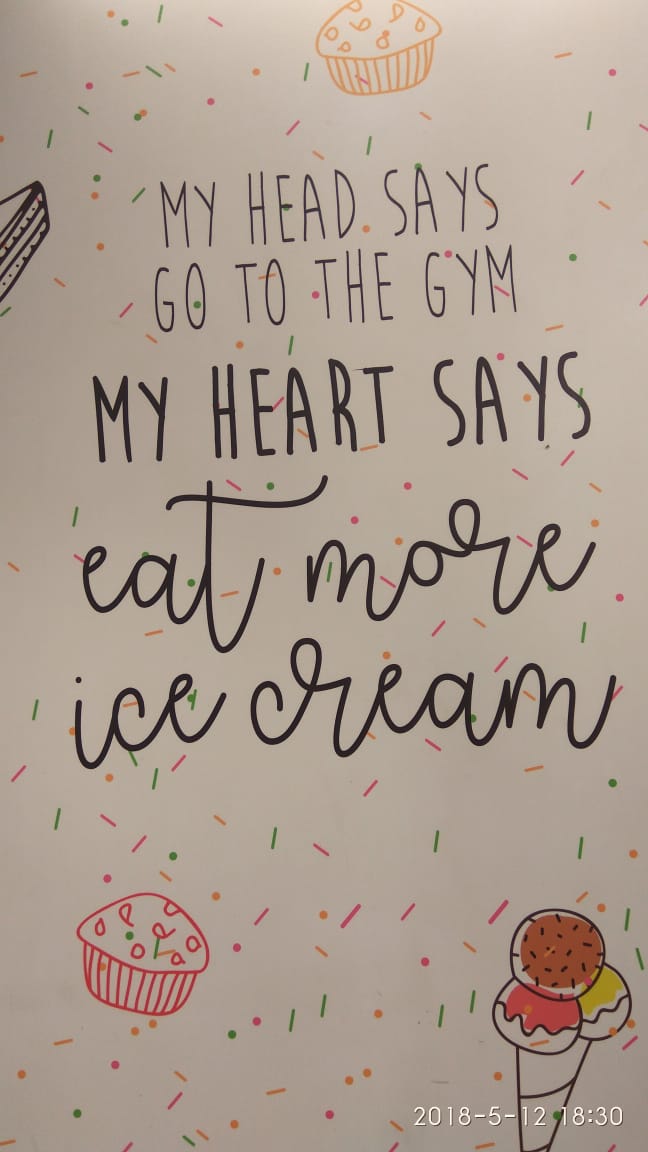 MY HEAD SAYS
GO TO THE GYM
MY HEART SAYS
eat more
ice cream
2018-5-12 18:30